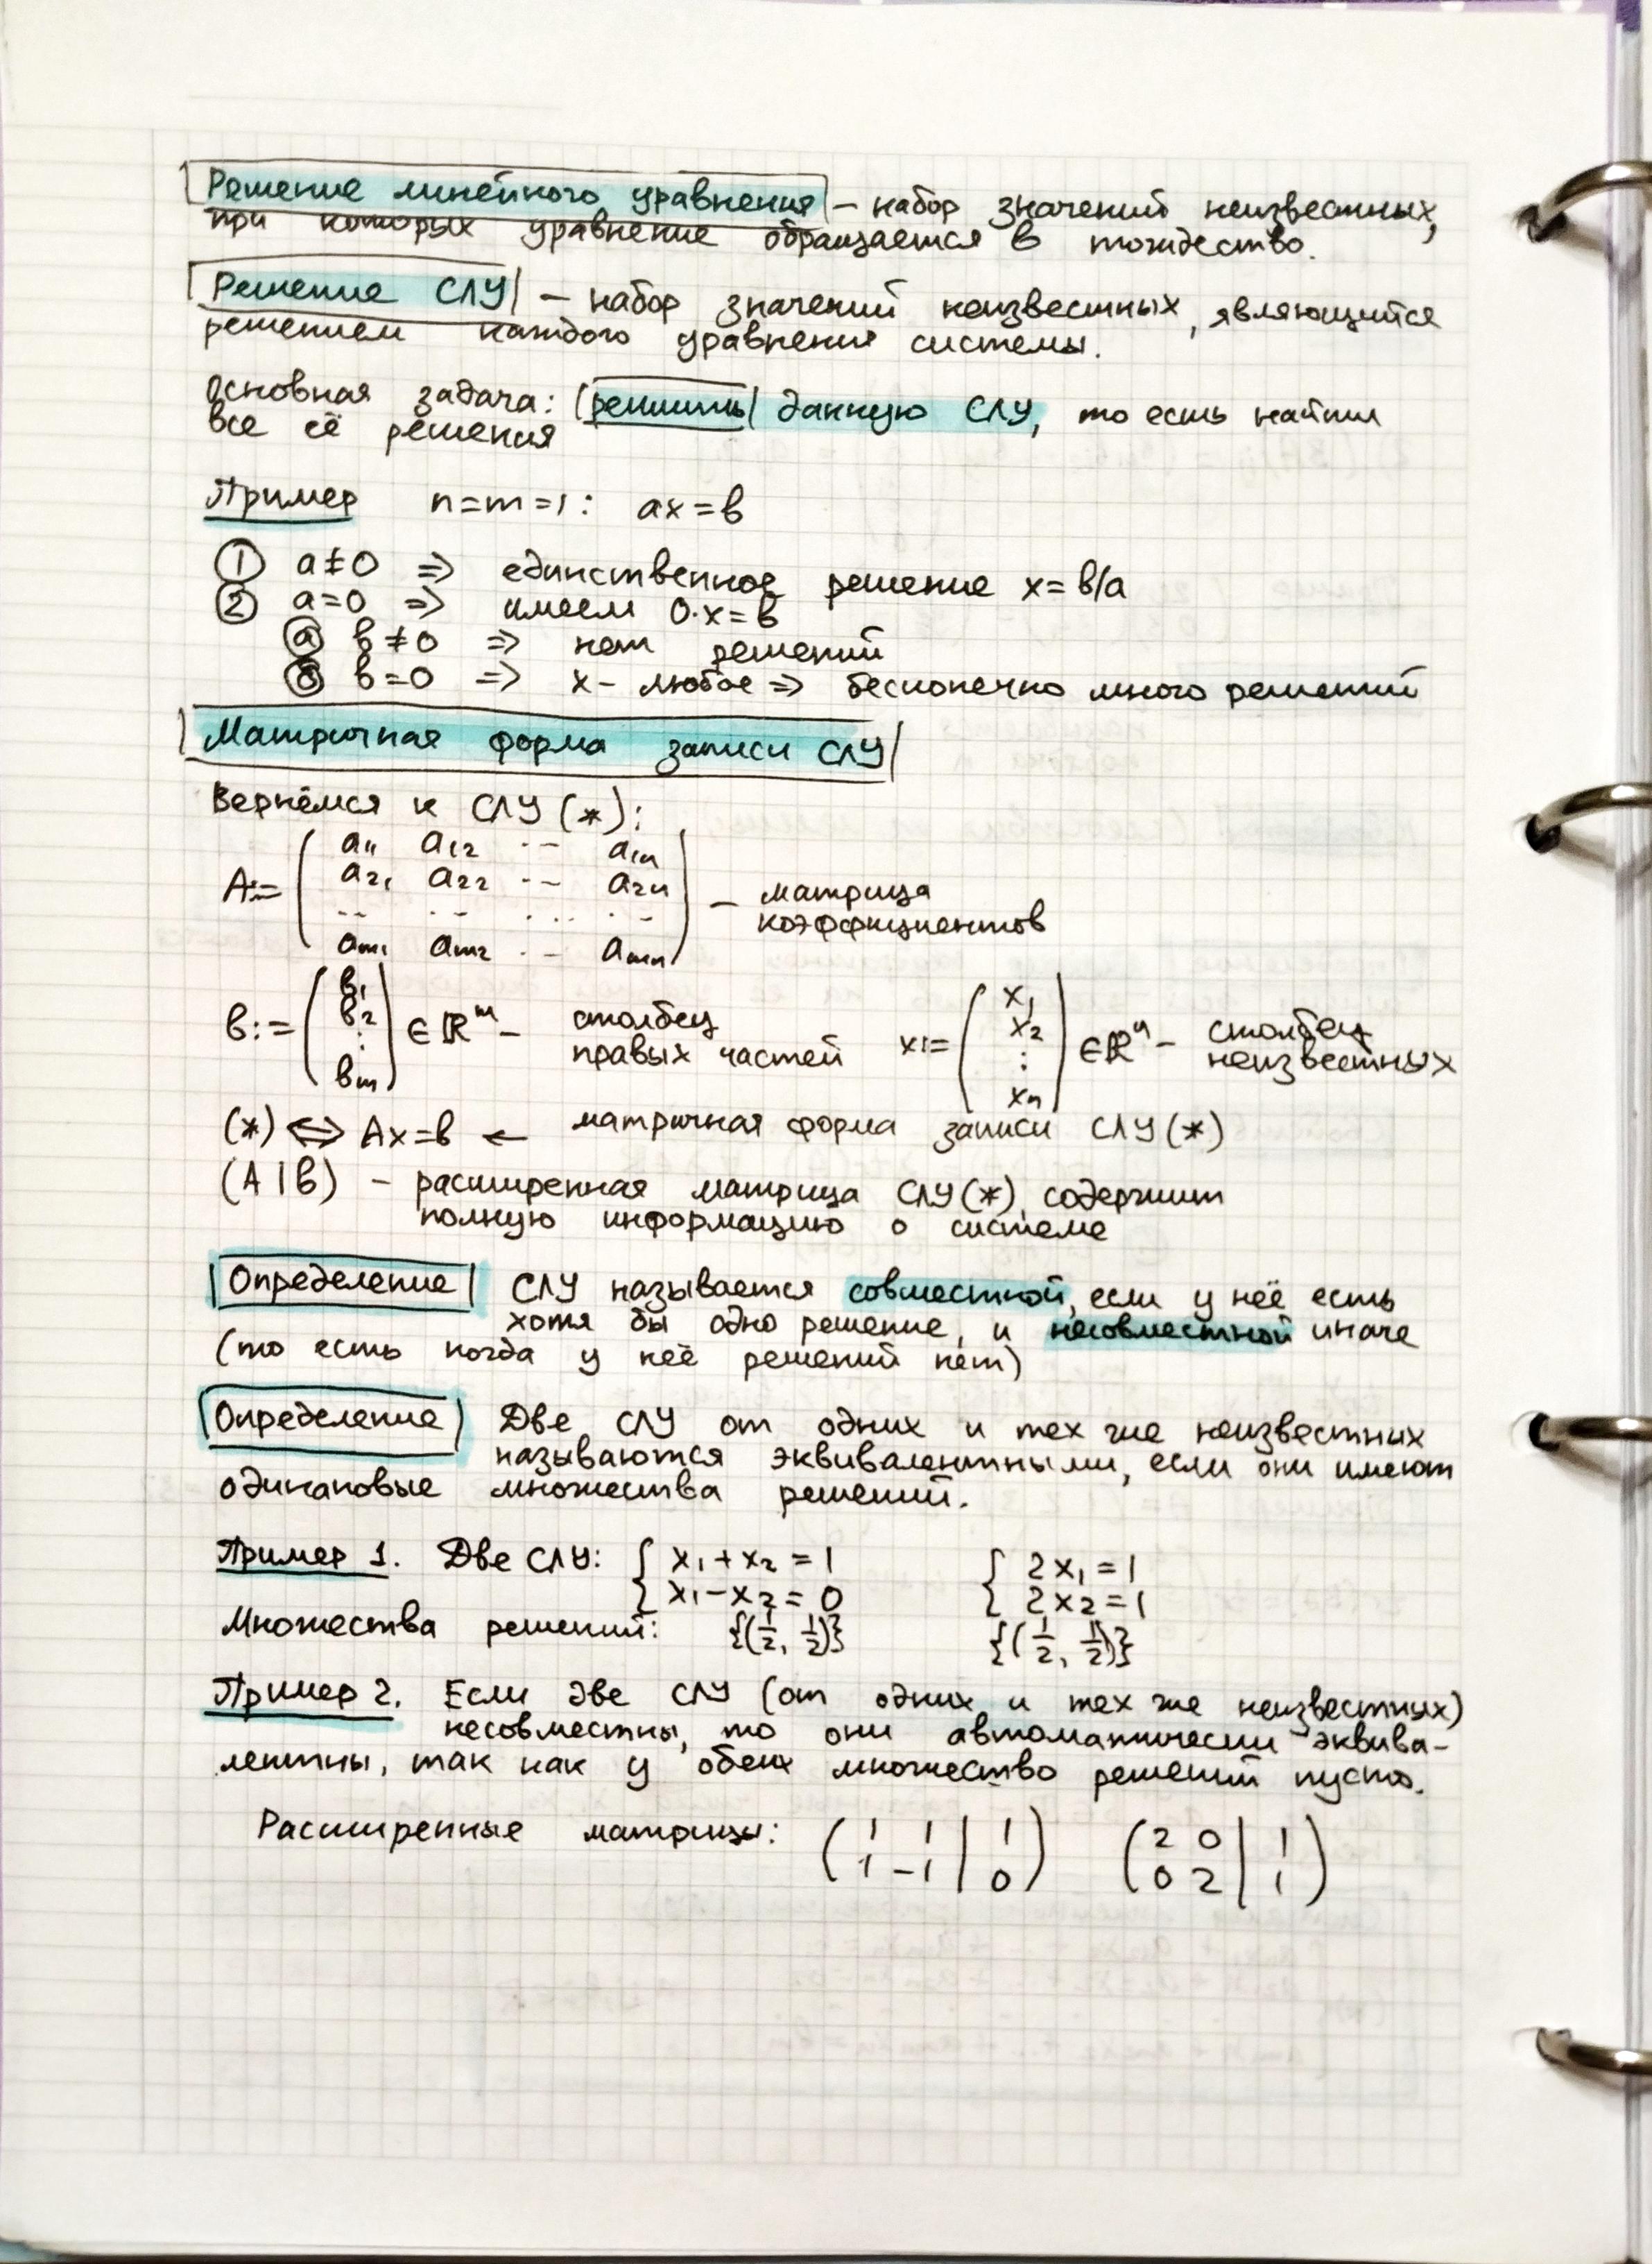 Решение линейного уравнения – набор значений неизвестных,
при которых уравнение обращается в тождество.
Решение СЛУ – набор значений неизвестных, являющийся
решением каждого уравнения системы.
Основная задача: решить данную СЛУ, то есть найти
все её решения
Пример n=m=1: ax=b
① a≠0 ⇒ единственное решение x=b/a
② a=0 ⇒ имеем 0·x=b
ⓐ b≠0 ⇒ нет решений
ⓑ b=0 ⇒ x – любое ⇒ бесконечно много решений
Матричная форма записи СЛУ
Вернёмся к СЛУ (*):
a₁₁ a₁₂ ... a₁ₙ
A:= a₂₁ a₂₂ ... a₂ₙ – матрица
... ... ... ... коэффициентов
aₘ₁ aₘ₂ ... aₘₙ
b:= (b₁ b₂ ⋮ bₘ) ∈ ℝᵐ – столбец правых частей x:= (x₁ x₂ ⋮ xₙ) ∈ ℝⁿ – столбец неизвестных
(*) ⇔ Ax=b ← матричная форма записи СЛУ (*)
(A|b) – расширенная матрица СЛУ (*), содержит
полную информацию о системе
Определение СЛУ называется совместной, если у неё есть
хотя бы одно решение, и несовместной иначе
(то есть когда у неё решений нет)
Определение Две СЛУ от одних и тех же неизвестных
называются эквивалентными, если они имеют
одинаковые множества решений.
Пример 1. Две СЛУ: { x₁+x₂=1 { 2x₁=1
x₁-x₂=0 2x₂=1
Множества решений: {(1/2, 1/2)} {(1/2, 1/2)}
Пример 2. Если две СЛУ (от одних и тех же неизвестных)
несовместны, то они автоматически эквива-
лентны, так как у обеих множество решений пусто.
Расширенные матрицы: (1 1 | 1) (2 0 | 1)
(1 -1 | 0) (0 2 | 1)